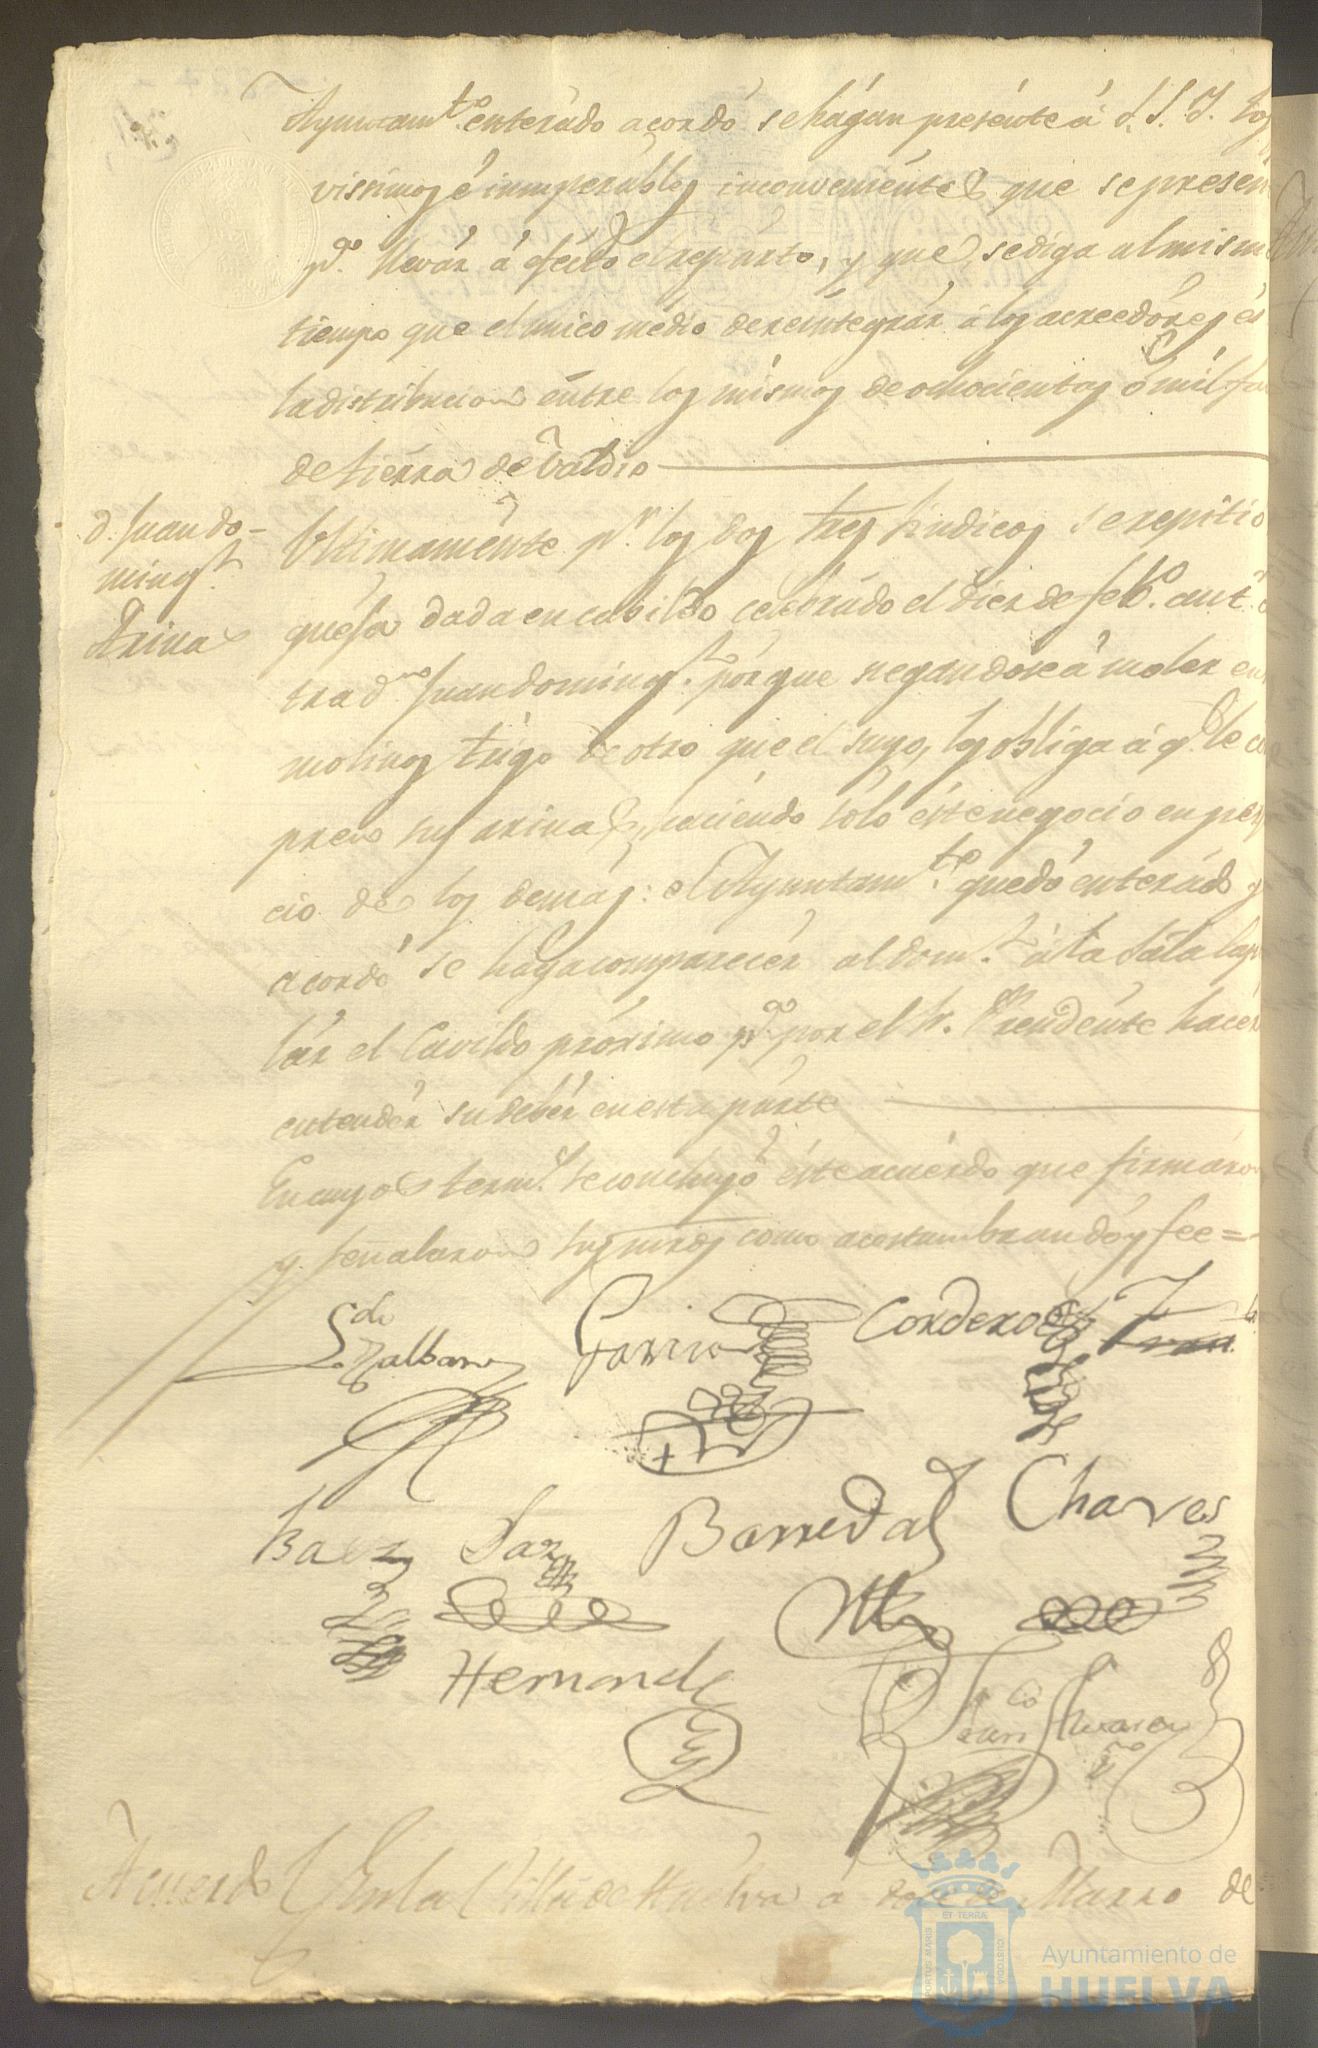 Ayuntamto. enterado acordó se hágan presénte á S. S. I. los
visimos é insuperables inconveniéntes que se presen
pa. llevár á efécto el repárto, y que se diga al mism
tiempo que el unico médio de reintegrár á los acreedóres és
la distribucion éntre los mismos de ochocientos ó mil fan
de tiérra de valdio
D. Juan Do-
ming.
Arinas
Ultimaménte pr. los dos Sres Sindicos se repitió
quéja dada en cabildo celebrádo el diez de febo. ant.
tra dno Juan Doming. pórque negandose á moler en
molinos trigo de otro que el suyo, los obliga á qe. le co
pren sus arinas, haciéndo sólo éste negocio en perj
cio de los demás: el Ayuntamto. quedó enterádo y
acordó se hága comparecér al Dom. á la Sála Capi
lár el Cavildo próximo pa. por el Sr. Presidénte hacér
entendér su debér en esta párte
En cuyos term. se concluyó éste acuérdo que firmáron
y señalaron sus mrds como acostumbran dóy fee =
Ldo Zalbar
Garcia
Cordero
Baez
Paz
Barreda
Chaves
Hernand
Acuerdo En la Villa de Huelva á doce de Marzo de
PORTUS MARIS
ET TERRÆ
CUSTODIA
Ayuntamiento de
HUELVA